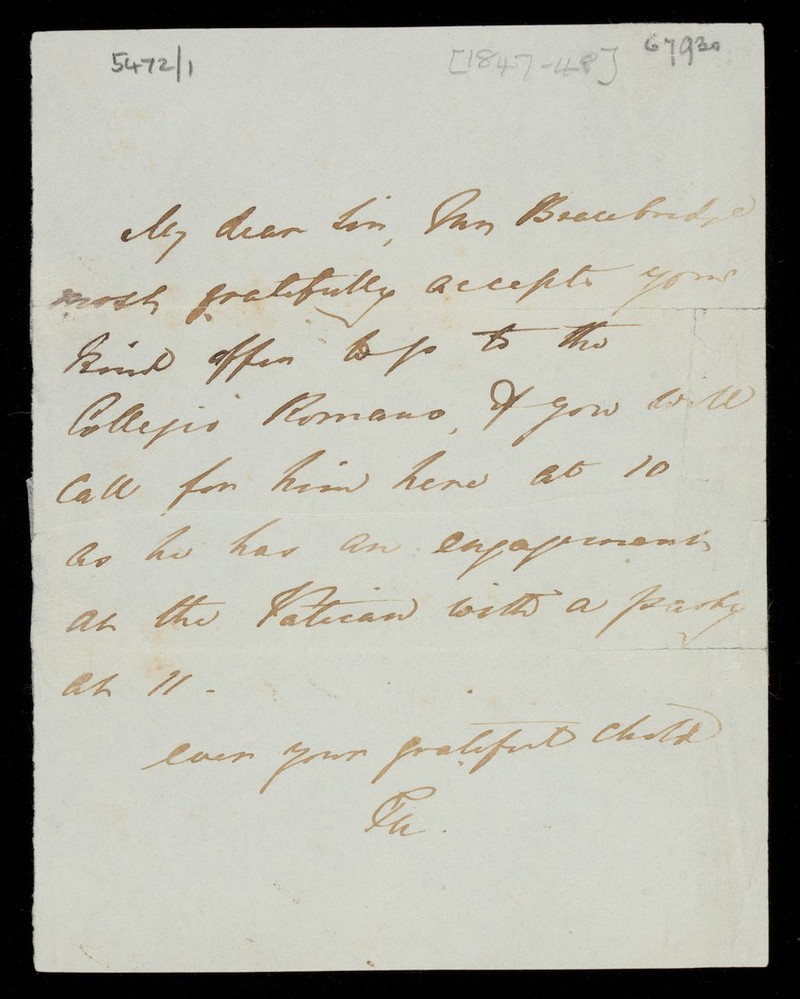 5472/1 [1847-48] 67930
My dear Sir, Mr Bracebridge
most gratefully accepts your
kind offer to go to the
Collegio Romano, if you will
call for him here at 10
as he has an engagement
at the Vatican with a party
at 11 -
ever your grateful child